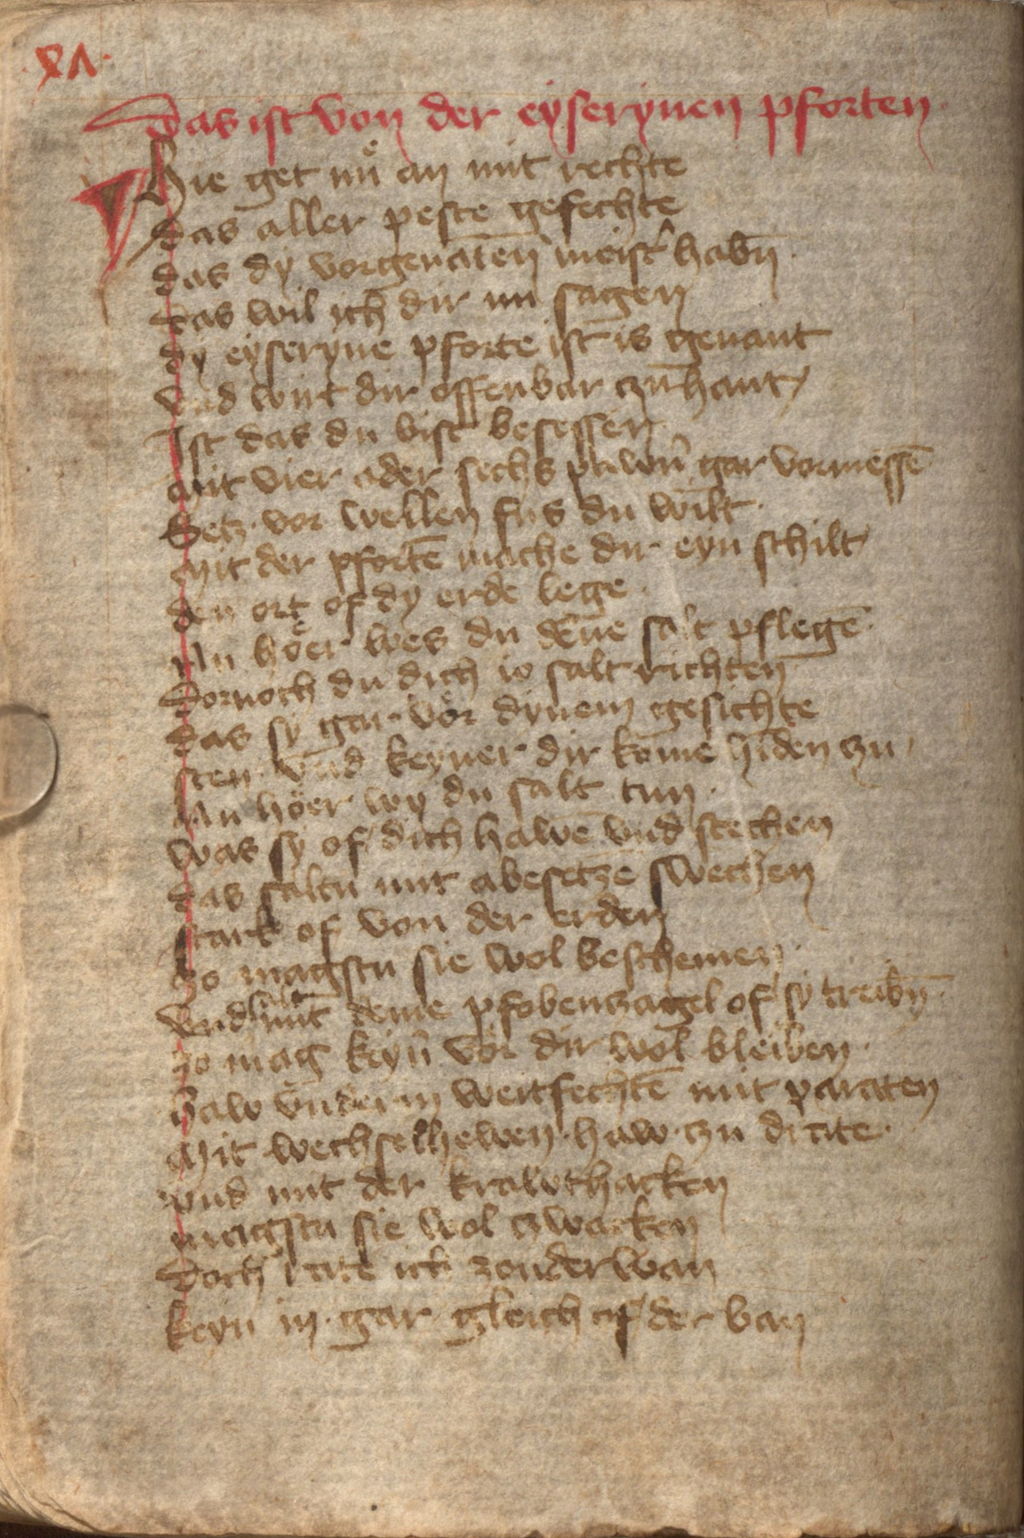 XV.
Das ist von der eyserynen pforten
Hie get nu an mit rechte
das aller peste gefechte
das dy vorgenāten meist' habn̄
das wil ich dir nu sagen
dy eyseryne pforte ist is genant
vnd wirt dir offenbar czu hant
Ist das du bist besessen
mit vier ader sechs pawrn̄ gar vormessē
Setz vor wellen fus du wilt
Mit der pfortē mache dir eyn schilt
den ort of dy erde lege
Nu höer wes du dēne salt pflegē
Dornoch du dich io salt richten
das sy gar vor dynem gesichte
sten vnd keyner dir kome hīden czu
Nu höer wy du salt tun
was sy of dich hawē vnd stechen
das saltu mit abesetcze swechen
stark of von der erden
zo magstu sie wol beschemen
vnd salt mit deme pfobenczagel of sy treibn̄
zo mag keyn' vor dir wol bleiben
haw vnderin weitfechtē mit paraten
Mit wechselhewen haw czu drate
vnd mit der krawthacken
magstu sie wol czwacken
Doch rate ich zonder wan
keyn in gar gleich of der ban